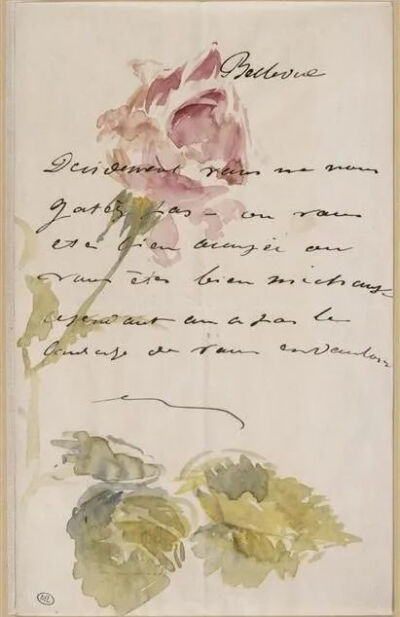 Bellevue
Décidement vous ne nous
gatez pas - ou vous
etes bien occupée ou
vous êtes bien méchante
cependant on a pas le
courage de vous en vouloir
ML